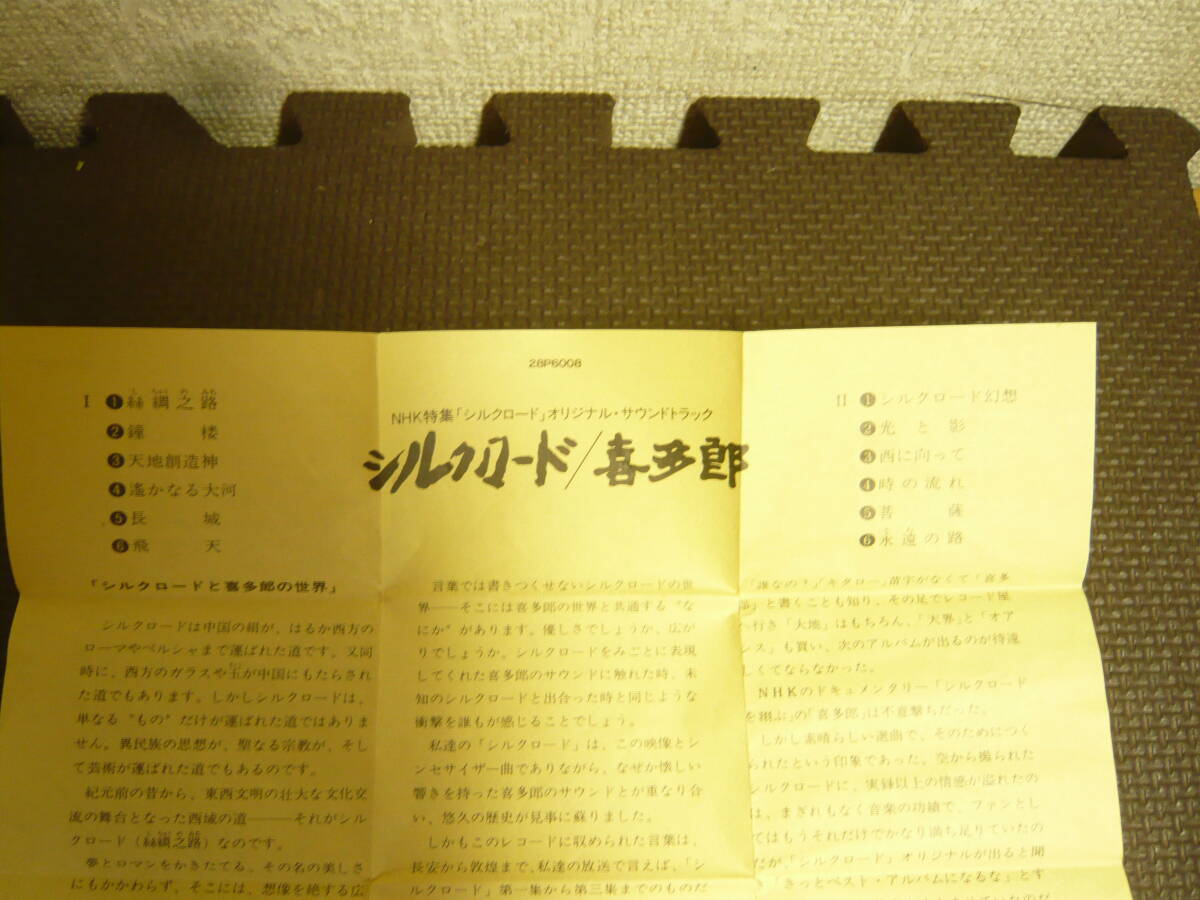 28P6008
NHK特集「シルクロード」オリジナル・サウンドトラック
シルクロード/喜多郎
I ❶絲綢之路
❷鐘 楼
❸天地創造神
❹遙かなる大河
❺長 城
❻飛 天
II ❶シルクロード幻想
❷光 と 影
❸西に向って
❹時 の 流 れ
❺菩 薩
❻永 遠 の 路
「シルクロードと喜多郎の世界」
シルクロードは中国の絹が、はるか西方の
ローマやペルシャまで運ばれた道です。又同
時に、西方のガラスや玉が中国にもたらされ
た道でもあります。しかしシルクロードは、
単なる“もの”だけが運ばれた道ではありま
せん。異民族の思想が、聖なる宗教が、そし
て芸術が運ばれた道でもあるのです。
紀元前の昔から、東西文明の壮大な文化交
流の舞台となった西域の道――それがシル
クロード(絲綢之路)なのです。
夢とロマンをかきたてる、その名の美しさ
にもかかわらず、そこには、想像を絶する広
言葉では書きつくせないシルクロードの世
界――そこには喜多郎の世界と共通する“な
にか”があります。優しさでしょうか、広が
りでしょうか。シルクロードをみごとに表現
してくれた喜多郎のサウンドに触れた時、未
知のシルクロードと出合った時と同じような
衝撃を誰もが感じることでしょう。
私達の「シルクロード」は、この映像とシ
ンセサイザー曲でありながら、なぜか懐しい
響きを持った喜多郎のサウンドとが重なり合
い、悠久の歴史が見事に蘇りました。
しかもこのレコードに収められた言葉は、
長安から敦煌まで、私達の放送で言えば、「シ
ルクロード」第一集から第三集までのものだ
「誰なの?」「キタロー」苗字がなくて「喜多
郎」と書くことも知り、その足でレコード屋
へ行き「大地」はもちろん、「天界」と「オア
シス」も買い、次のアルバムが出るのが待遠
しくてならなかった。
NHKのドキュメンタリー「シルクロード
を翔ぶ」の「喜多郎」は不意撃ちだった。
しかし素晴らしい選曲で、そのためにつく
られたという印象であった。空から撮られた
シルクロードに、実録以上の情感が溢れたの
は、まぎれもなく音楽の功績で、ファンとし
てはもうそれだけでかなり満ち足りていたの
だが、「シルクロード」オリジナルが出ると聞
き「きっとベスト・アルバムになるな」とす